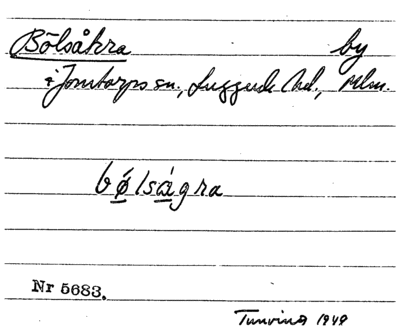 Bölsåkra by
i Jonstorps sn., Luggude hd., Mlm.
bø̱lsá̱gra
Nr 5683.
Tunvind 1949